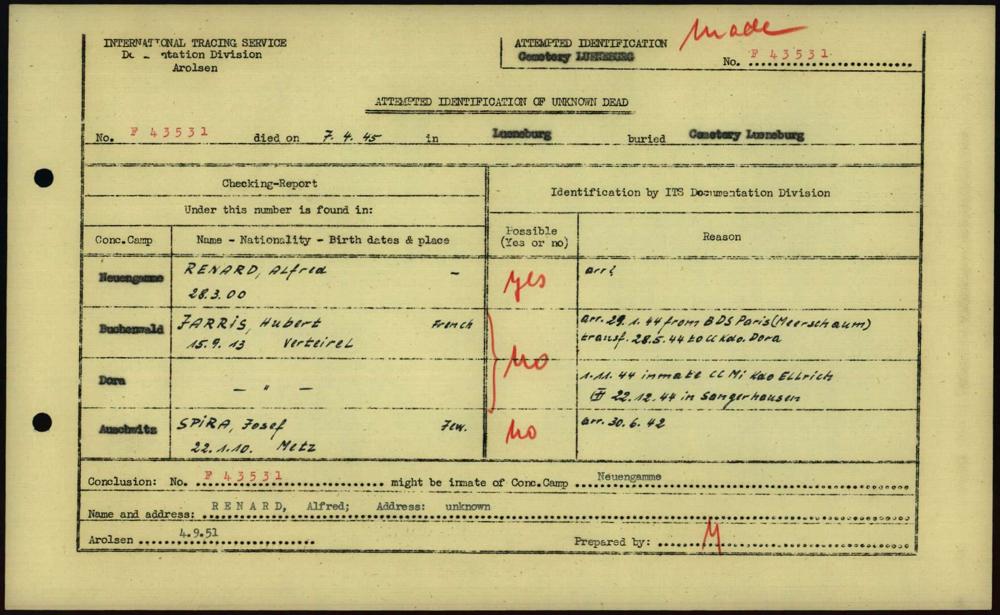 Made
INTERNATIONAL TRACING SERVICE
Documentation Division
Arolsen
ATTEMPTED IDENTIFICATION
Cemetery LUENEBURG
No. F 43531
ATTEMPTED IDENTIFICATION OF UNKNOWN DEAD
No. F 43531 died on 7.4.45 in Lueneburg buried Cemetery Lueneburg
Checking-Report
Identification by ITS Documentation Division
Under this number is found in:
Conc.Camp Name - Nationality - Birth dates & place Possible (Yes or no) Reason
Neuengamme RENARD, Alfred - yes arr?
28.3.00
Buchenwald JARRIS, Hubert French no arr. 29.1.44 from BDS Paris (Meerschaum)
15.9.13 Verteirel transf. 28.5.44 to Kdo. Dora
Dora - " - 1.11.44 inmate CC Mi Kdo Ellrich
22.12.44 in Sangerhausen
Auschwitz SPIRA, Josef Jew. no arr. 30.6.42
22.1.10. Metz
Conclusion: No. F 43531 might be inmate of Conc.Camp Neuengamme
Name and address: RENARD, Alfred; Address: unknown
Arolsen 4.9.51 Prepared by: